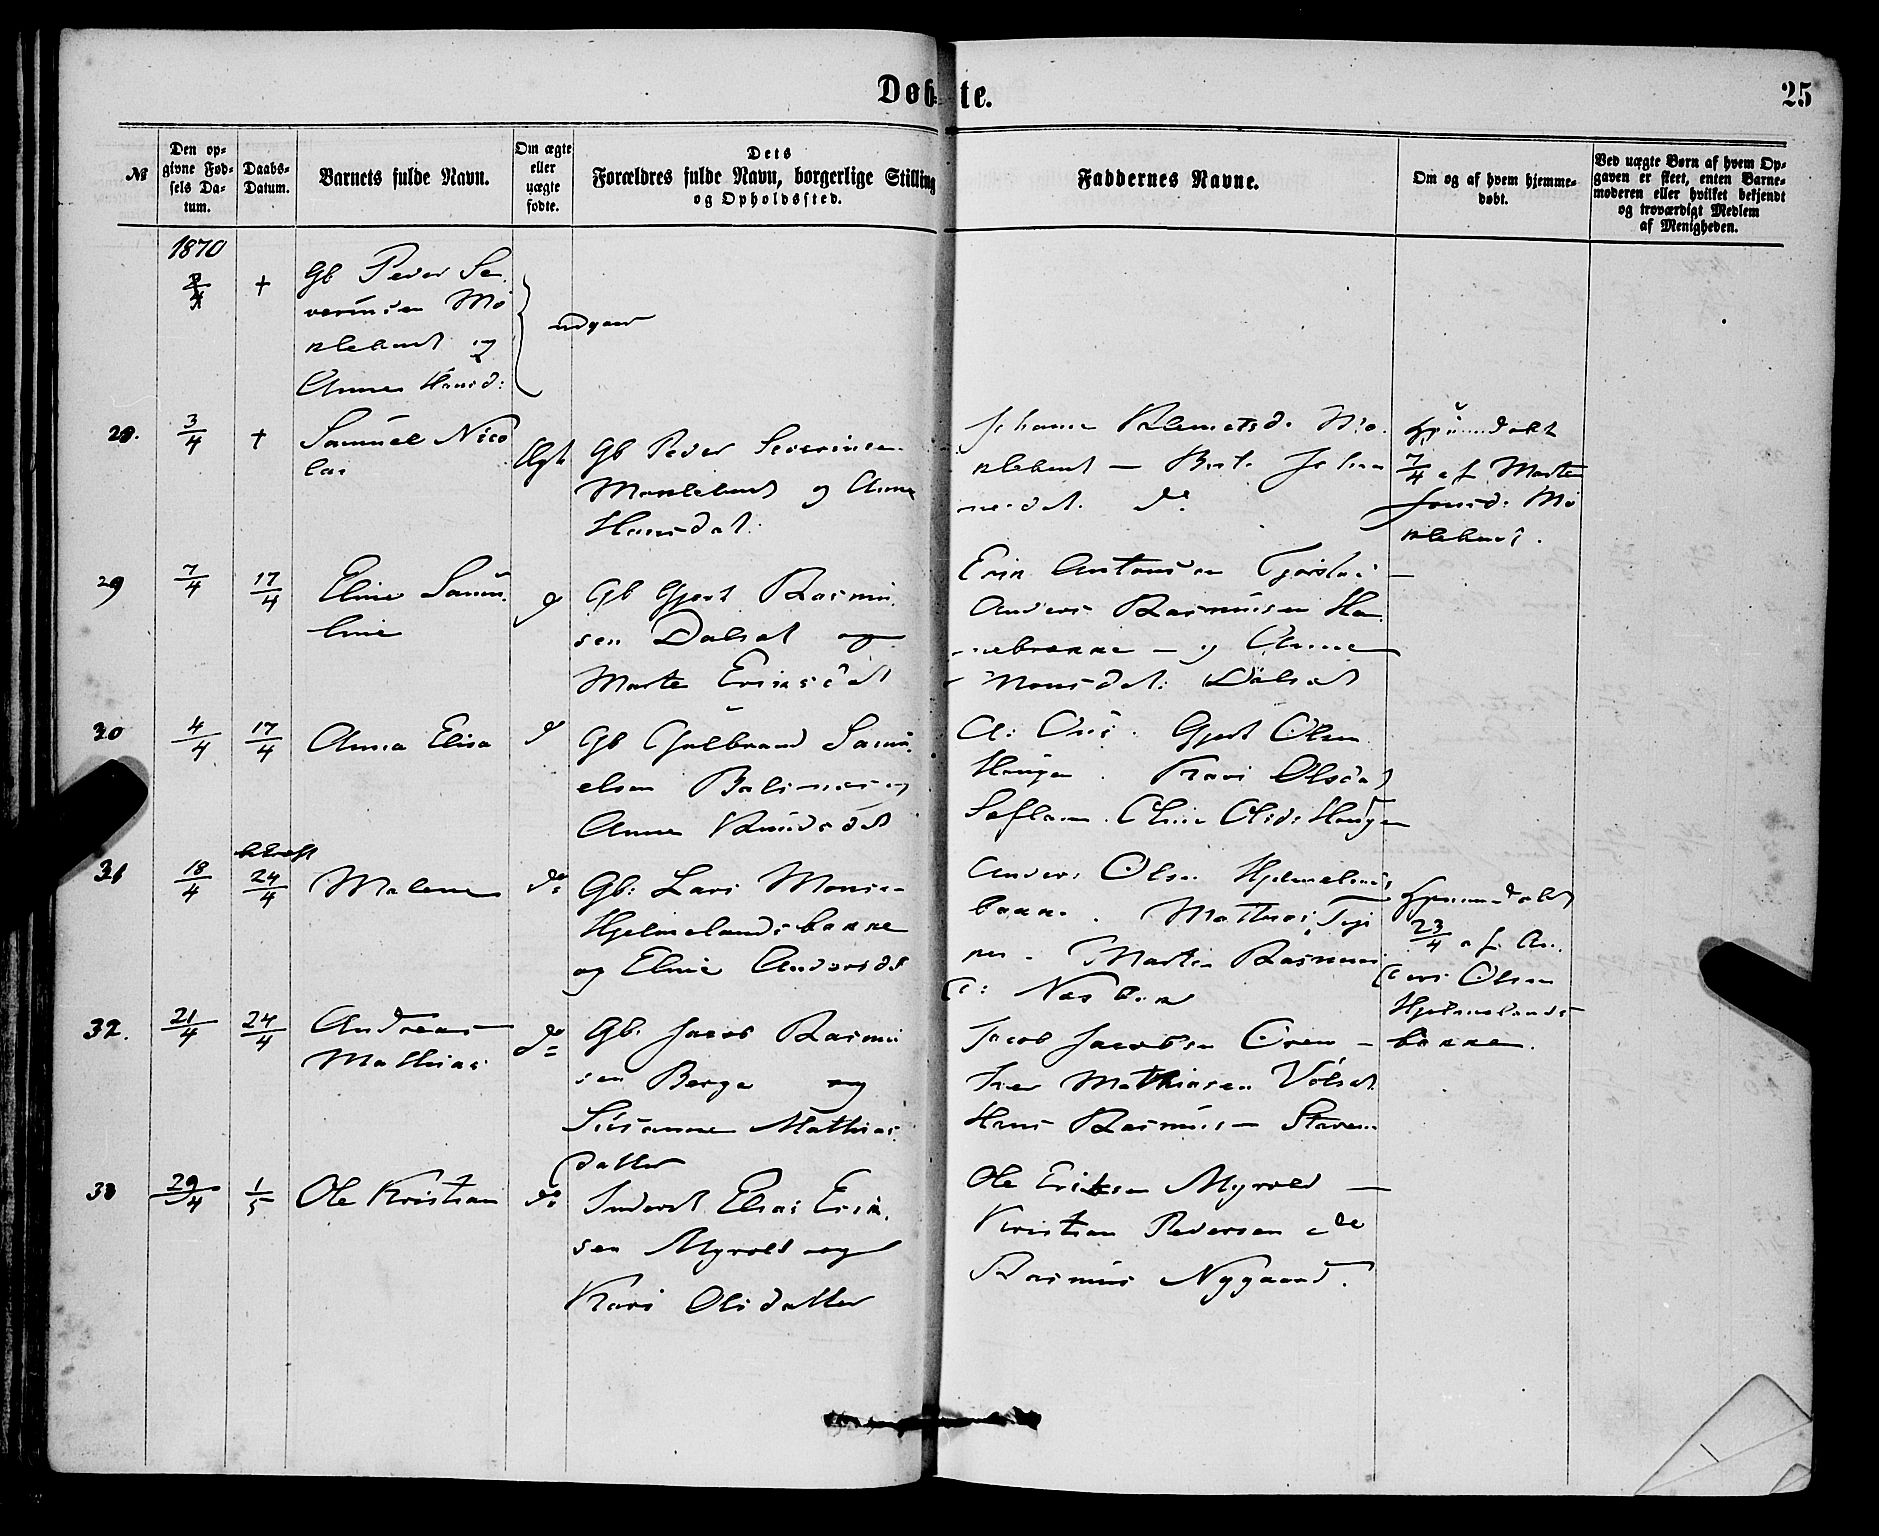 Døb-te.
25
№
Den op-
givne Fød-
sels Da-
tum.
Daabs-
Datum.
Barnets fulde Navn.
Om ægte
eller
uægte
fødte.
Dets
Forældres fulde Navn, borgerlige Stilling
og Opholdssted.
Faddernes Navne.
Om og af hvem hjemme-
døbt.
Ved uægte Børn af hvem Op-
gaven er skeet, enten Barne-
moderen eller hvilket bekjendt
og troværdigt Medlem
af Menigheden.
1870
+
Gb Peder Se
verinsen Mø
klebust og
Anne Hansd:
udgaar
28.
3/4
+
Samuel Nico
lai
Ægt
Gb Peder Severinsen
Møklebust og Anne
Hansdat:
Johanne Klemetsd. Mø
klebust — Johan
nesdat. do
Hjemmedøbt
7/4 af Marte
Jonsd: Mø
klebust.
29
7/4
17/4
Eline Samu
line
d
Gb Gjert Rasmu
sen Dalsat og
Marte Eriksdat
Erik Antonsen
Anders Rasmusen Ha
nebrække — og Anne
Monsdat: Dalsat
30
4/4
17/4
Anna Elisa
d
Gb Gulbrand Samu
elsen og
Anne Knudsdat
Gjert Olsen
Haugen. Kari Olsdat
Oline Olsd: Haugen
31
18/4
bekræft
24/4
Malene
do:
Gb: Lars Monsen
Hjelmelandsbakke
og Eline Andersdt
Anders Olsen Hjelmelands
bakke. Mathias
Marte Rasmus
d:
Hjemmedøbt
23/4 af An
ders Olsen
Hjelmelands
bakken.
32.
21/4
24/4
Andreas
Mathias
do
Gb. Jacob Rasmu
sen Berge og
Susanne Mathias
datter
Jacob Jacobsen —
Iver Mathiasen
Hans Rasmusen
33
29/4
1/5
Ole Kristian
do:
Inderst Elias Erik
sen Myrold og
Kari Olsdatter
Ole Eriksen Myrold —
Kristian Pedersen do
Rasmus Nygaard.